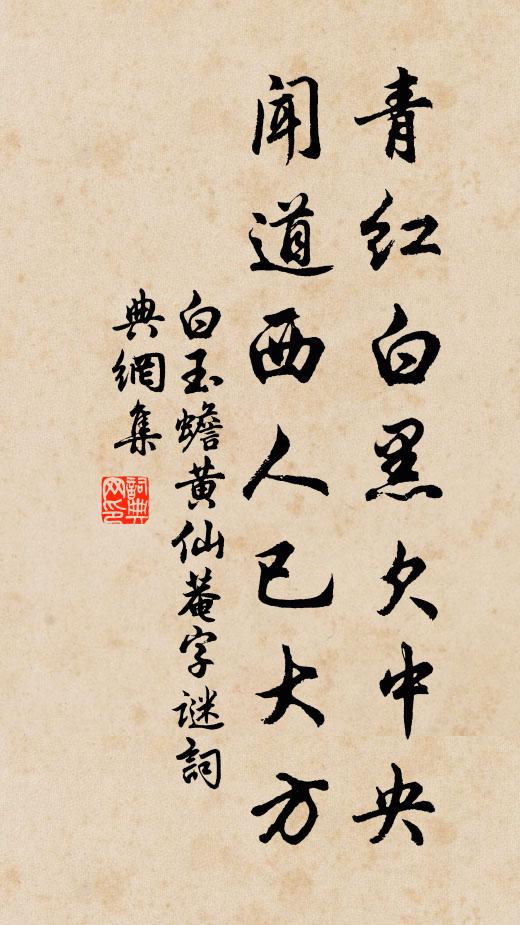 青红白黑欠中央
闻道西人已大方
白玉蟾黄仙菴字谜詞
典網集
詞典网印